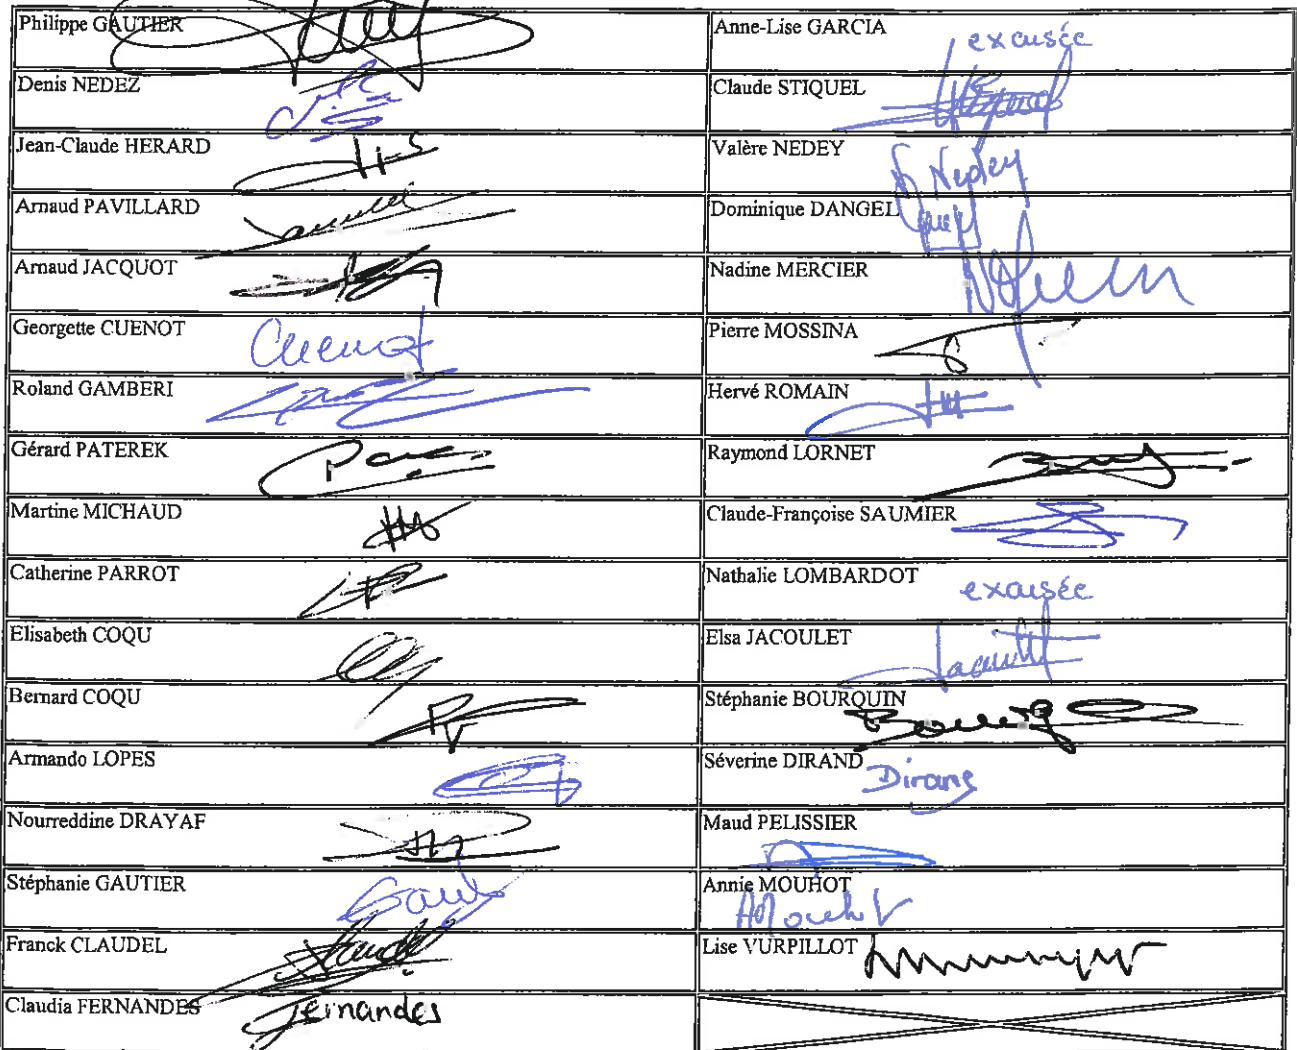 Philippe GAUTIER
Anne-Lise GARCIA excusée
Denis NEDEZ
Claude STIQUEL
Jean-Claude HERARD
Valère NEDEY Nedey
Arnaud PAVILLARD
Dominique DANGEL
Arnaud JACQUOT
Nadine MERCIER
Georgette CUENOT Cuenot
Pierre MOSSINA
Roland GAMBERI
Hervé ROMAIN
Gérard PATEREK
Raymond LORNET
Martine MICHAUD
Claude-Françoise SAUMIER
Catherine PARROT
Nathalie LOMBARDOT excusée
Elisabeth COQU
Elsa JACOULET
Bernard COQU
Stéphanie BOURQUIN
Armando LOPES
Séverine DIRAND Dirand
Nourreddine DRAYAF
Maud PELISSIER
Stéphanie GAUTIER
Annie MOUHOT AMouhot
Franck CLAUDEL
Lise VURPILLOT
Claudia FERNANDES Fernandes